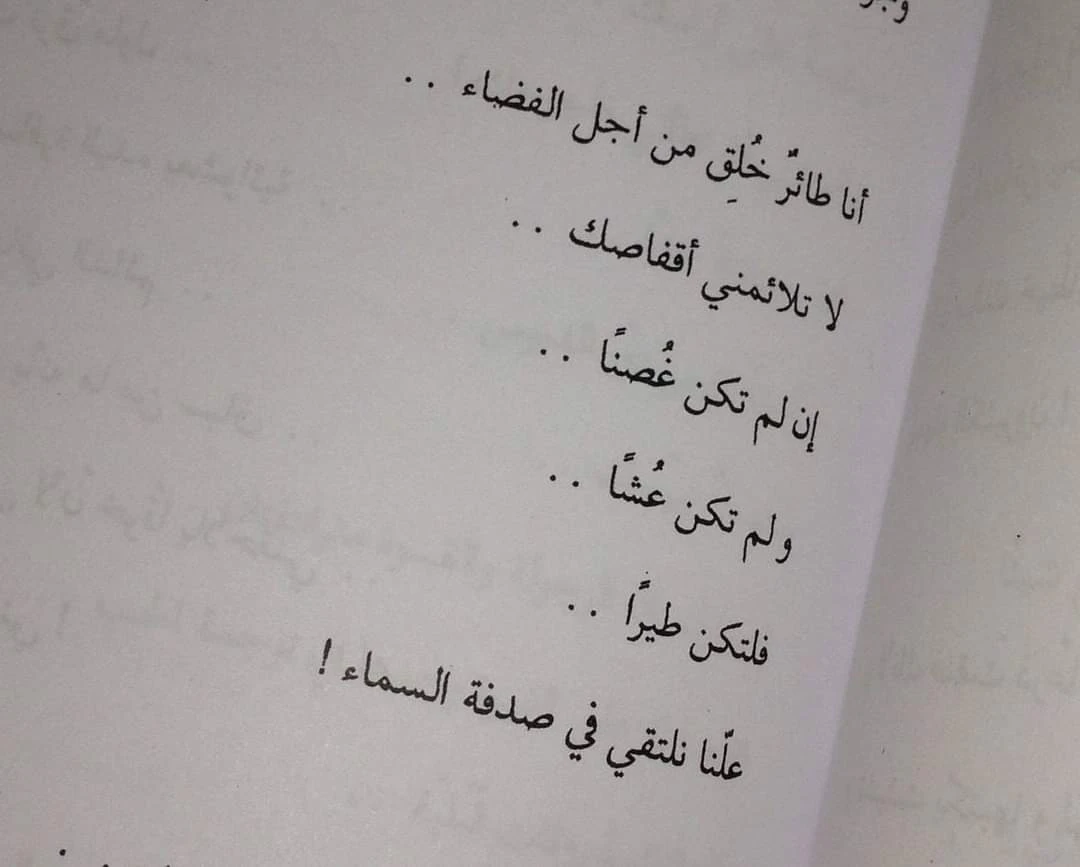 أنا طائرٌ خُلِق من أجل الفضاء ..
لا تلائمني أقفاصك ..
إن لم تكن غُصنًا ..
ولم تكن عُشًا ..
فلتكن طيرًا ..
علّنا نلتقي في صدفة السماء !